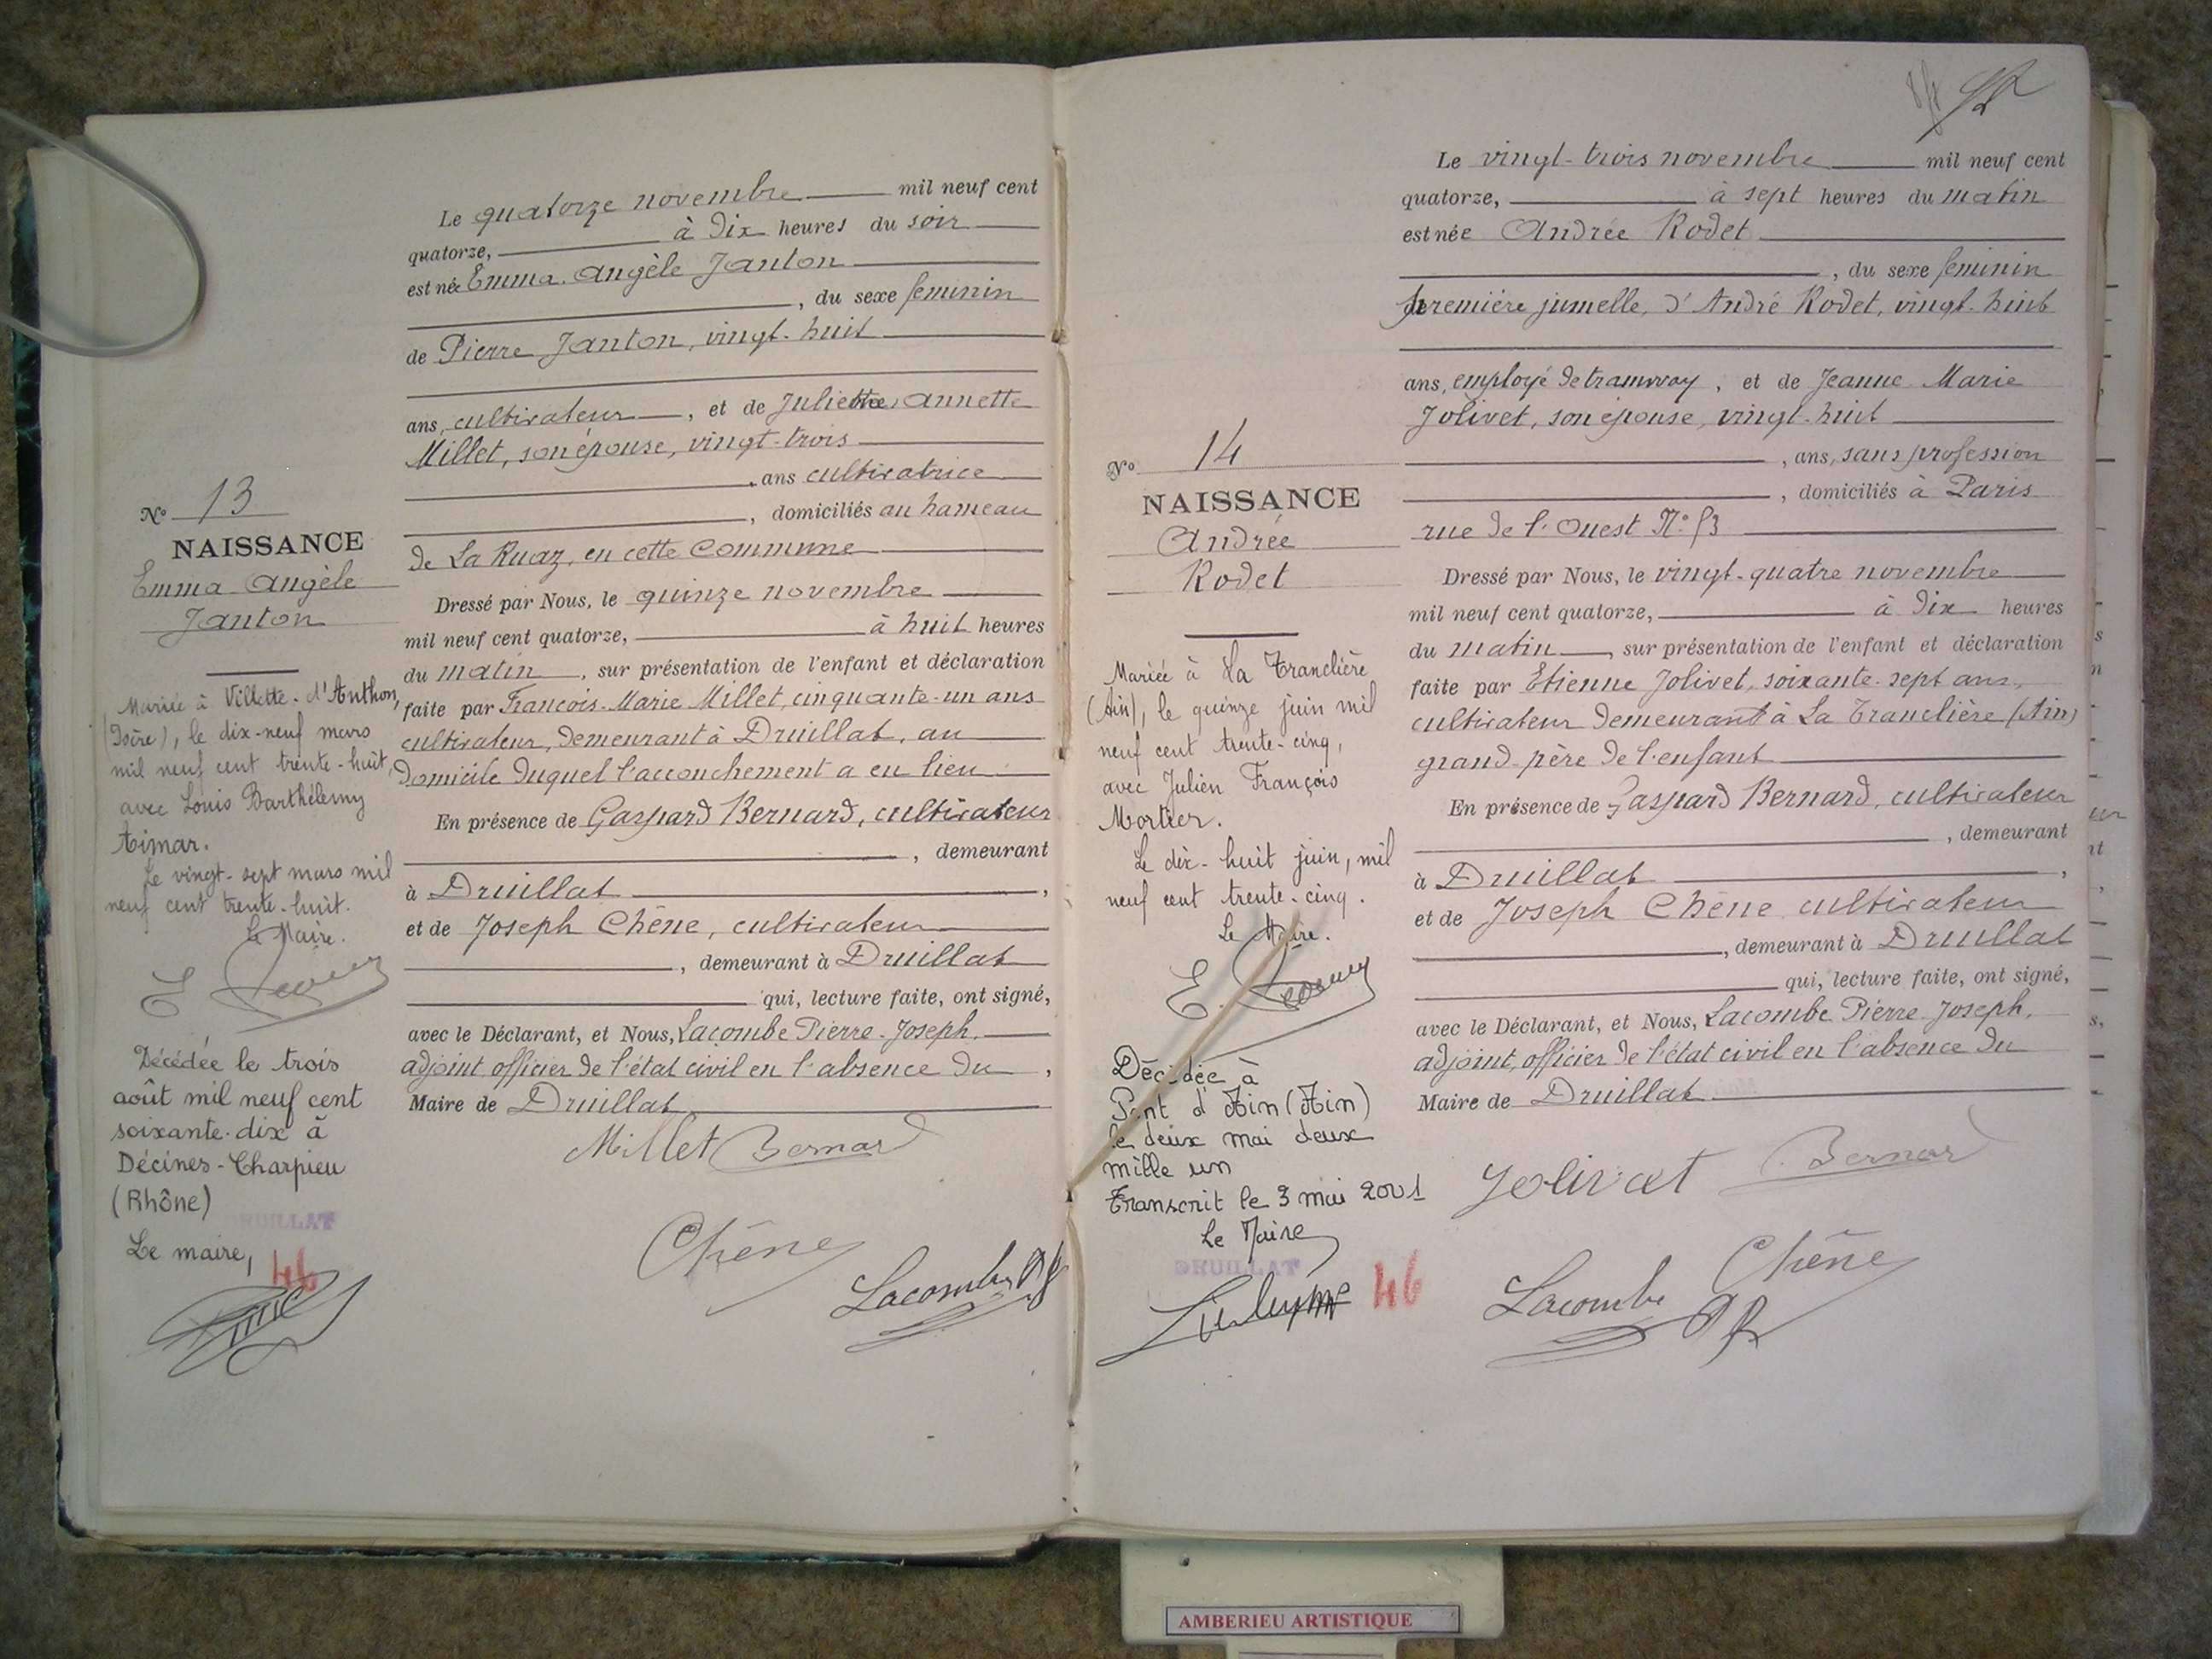 Le quatorze novembre mil neuf cent
quatorze, à Dix heures du soir
est née Emma Angèle Janton
, du sexe féminin
de Pierre Janton, vingt-huit
ans, cultivateur, et de Juliette Annette
Millet, son épouse, vingt-trois
, ans cultivatrice
, domiciliés au hameau
de La Ruaz, en cette Commune
Dressé par Nous, le quinze novembre
mil neuf cent quatorze, à huit heures
du matin, sur présentation de l'enfant et déclaration
faite par François-Marie Millet, cinquante-un ans
cultivateur, demeurant à Druillat, au
domicile duquel l'accouchement a eu lieu
En présence de Gaspard Bernard, cultivateur
, demeurant
à Druillat,
et de Joseph Chêne, cultivateur
, demeurant à Druillat
qui, lecture faite, ont signé,
avec le Déclarant, et Nous, Lacombe Pierre-Joseph,
adjoint, officier de l'état civil en l'absence du,
Maire de Druillat
Millet Bernard
Chêne
Lacombe
No 13
NAISSANCE
Emma Angèle
Janton
Mariée à Villette-d'Anthon,
(Isère), le dix-neuf mars
mil neuf cent trente-huit,
avec Louis Barthélemy
Aimar.
Le vingt-sept mars mil
neuf cent trente-huit.
Le Maire.
Décédée le trois
août mil neuf cent
soixante-dix à
Décines-Charpieu
(Rhône)
DRUILLAT
Le maire,
46
Le vingt-trois novembre mil neuf cent
quatorze, à sept heures du matin
est née Andrée Rodet
, du sexe féminin
première jumelle, d'André Rodet, vingt-huit
ans, employé de tramway, et de Jeanne Marie
Jolivet, son épouse, vingt-huit
, ans, sans profession
, domiciliés à Paris
rue de l'Ouest N° 53
Dressé par Nous, le vingt-quatre novembre
mil neuf cent quatorze, à Dix heures
du matin, sur présentation de l'enfant et déclaration
faite par Etienne Jolivet, soixante-sept ans,
cultivateur demeurant à La Tranclière (Ain)
grand-père de l'enfant
En présence de Gaspard Bernard, cultivateur
, demeurant
à Druillat,
et de Joseph Chêne cultivateur
, demeurant à Druillat
qui, lecture faite, ont signé,
avec le Déclarant, et Nous, Lacombe Pierre Joseph,
adjoint, officier de l'état civil en l'absence du
Maire de Druillat
Jolivet Bernard
Chêne
Lacombe
No 14
NAISSANCE
Andrée
Rodet
Mariée à La Tranclière
(Ain), le quinze juin mil
neuf cent trente-cinq,
avec Julien François
Mortier.
Le dix-huit juin, mil
neuf cent trente-cinq.
Le Maire.
Décédée à
Pont d'Ain (Ain)
le deux mai deux
mille un
Transcrit le 3 mai 2001
Le Maire
DRUILLAT
46
AMBERIEU ARTISTIQUE